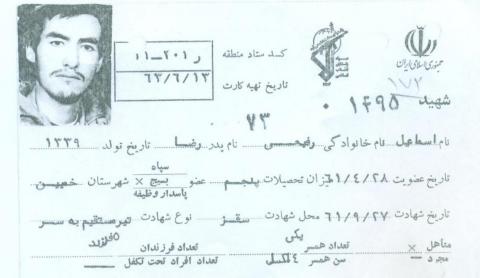 جمهوری اسلامی ایران
کد ستاد منطقه ر ۲۰۱-۱۱
تاریخ تهیه کارت ۶۳/۶/۱۳
۱۷۲
شهید ۱۴۹۵
۷۳
نام اسماعیل نام خانوادگی رفیعی نام پدر رضا تاریخ تولد ۱۳۳۹
تاریخ عضویت ۶۱/۴/۲۸ میزان تحصیلات پنجم عضو سپاه بسیج × پاسدار وظیفه شهرستان خمین
تاریخ شهادت ۶۱/۹/۲۷ محل شهادت سقز نوع شهادت تیر مستقیم به سر
متاهل × تعداد همسر یکی تعداد فرزندان
مجرد سن همسر تعداد افراد تحت تکفل